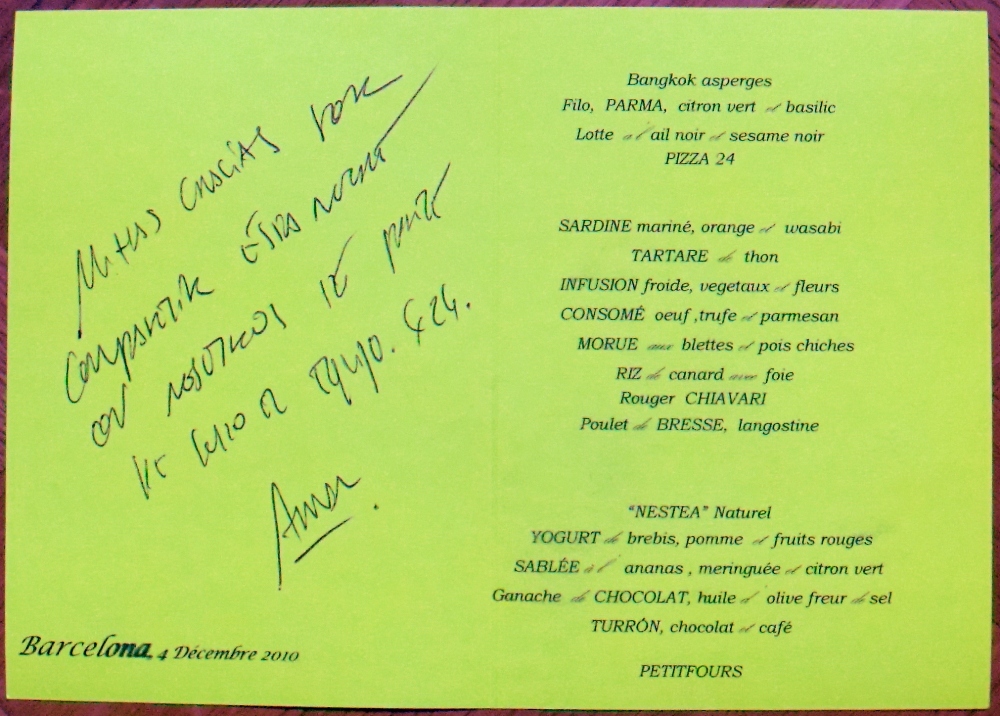 Muchas gracias por
compartir esta noche
con nosotros de parte
de todo el equipo. C24.
Barcelona, 4 Décembre 2010
Bangkok asperges
Filo, PARMA, citron vert et basilic
Lotte a l' ail noir et sesame noir
PIZZA 24
SARDINE mariné, orange et wasabi
TARTARE de thon
INFUSION froide, vegetaux et fleurs
CONSOMÉ oeuf ,trufe et parmesan
MORUE aux blettes et pois chiches
RIZ de canard avec foie
Rouger CHIAVARI
Poulet de BRESSE, langostine
“NESTEA” Naturel
YOGURT de brebis, pomme et fruits rouges
SABLÉE a l' ananas , meringuée et citron vert
Ganache de CHOCOLAT, huile d' olive freur de sel
TURRÓN, chocolat et café
PETITFOURS